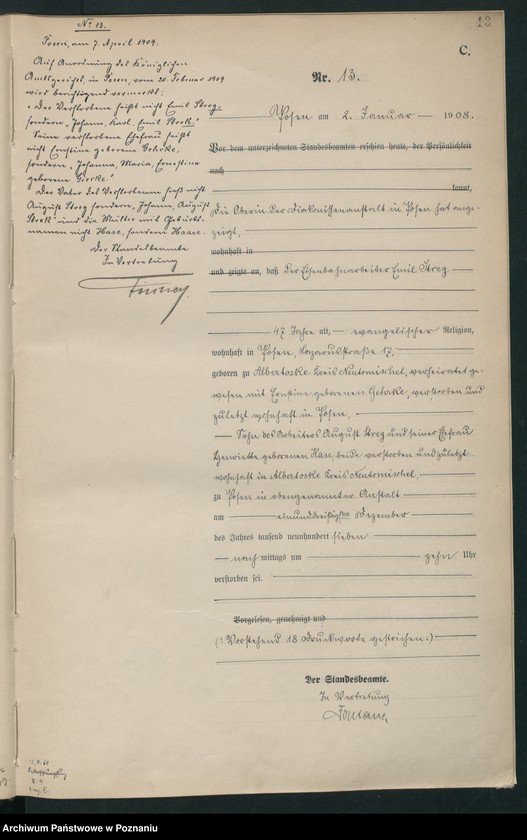 No 13.
Posen, am 7. April 1909.
Auf Anordnung des Königlichen
Amtsgerichts, in Posen, vom 20 Februar 1909
wird berichtigend vermerkt:
"Der Verstorbene heißt nicht Emil Streg,
sondern "Johann, Karl, Emil Strek".
Seine verstorbene Ehefrau heißt
nicht Ernstine geborene Gehrke,
sondern "Johanna, Maria, Ernestine
geborene Gierke."
Der Vater des Verstorbenen hieß nicht
August Streg sondern "Johann, August
Strek" und die Mutter mit Geburts-
namen nicht Hase, sondern Haase.
Der Standesbeamte
In Vertretung
13
C.
Nr. 13.
Posen am 2. Januar 1908.
Vor dem unterzeichneten Standesbeamten erschien heute, der Persönlichkeit
nach
kannt,
Die Oberin der Diakonissenanstalt in Posen hat ange-
zeigt,
wohnhaft in
und zeigte an, daß der Eisenbahnarbeiter Emil Streg
47 Jahre alt, evangelischer Religion,
wohnhaft in Posen, Lazarusstraße 17,
geboren zu Albertoske Kreis Neutomischel, verheiratet ge-
wesen mit Ernstine geborenen Gehrke, verstorben und
zuletzt wohnhaft in Posen,
Sohn des Arbeiters August Streg und seiner Ehefrau
Henriette geborenen Hase, beide verstorben und zuletzt
wohnhaft in Albertoske Kreis Neutomischel,
zu Posen in obengenannter Anstalt
am einunddreißigsten Dezember
des Jahres tausend neunhundert sieben
nachmittags um zehn Uhr
verstorben sei.
Vorgelesen, genehmigt und
(: Vorstehend 18 Druckworte gestrichen :)
Der Standesbeamte.
In Vertretung
Fontane
Archiwum Państwowe w Poznaniu